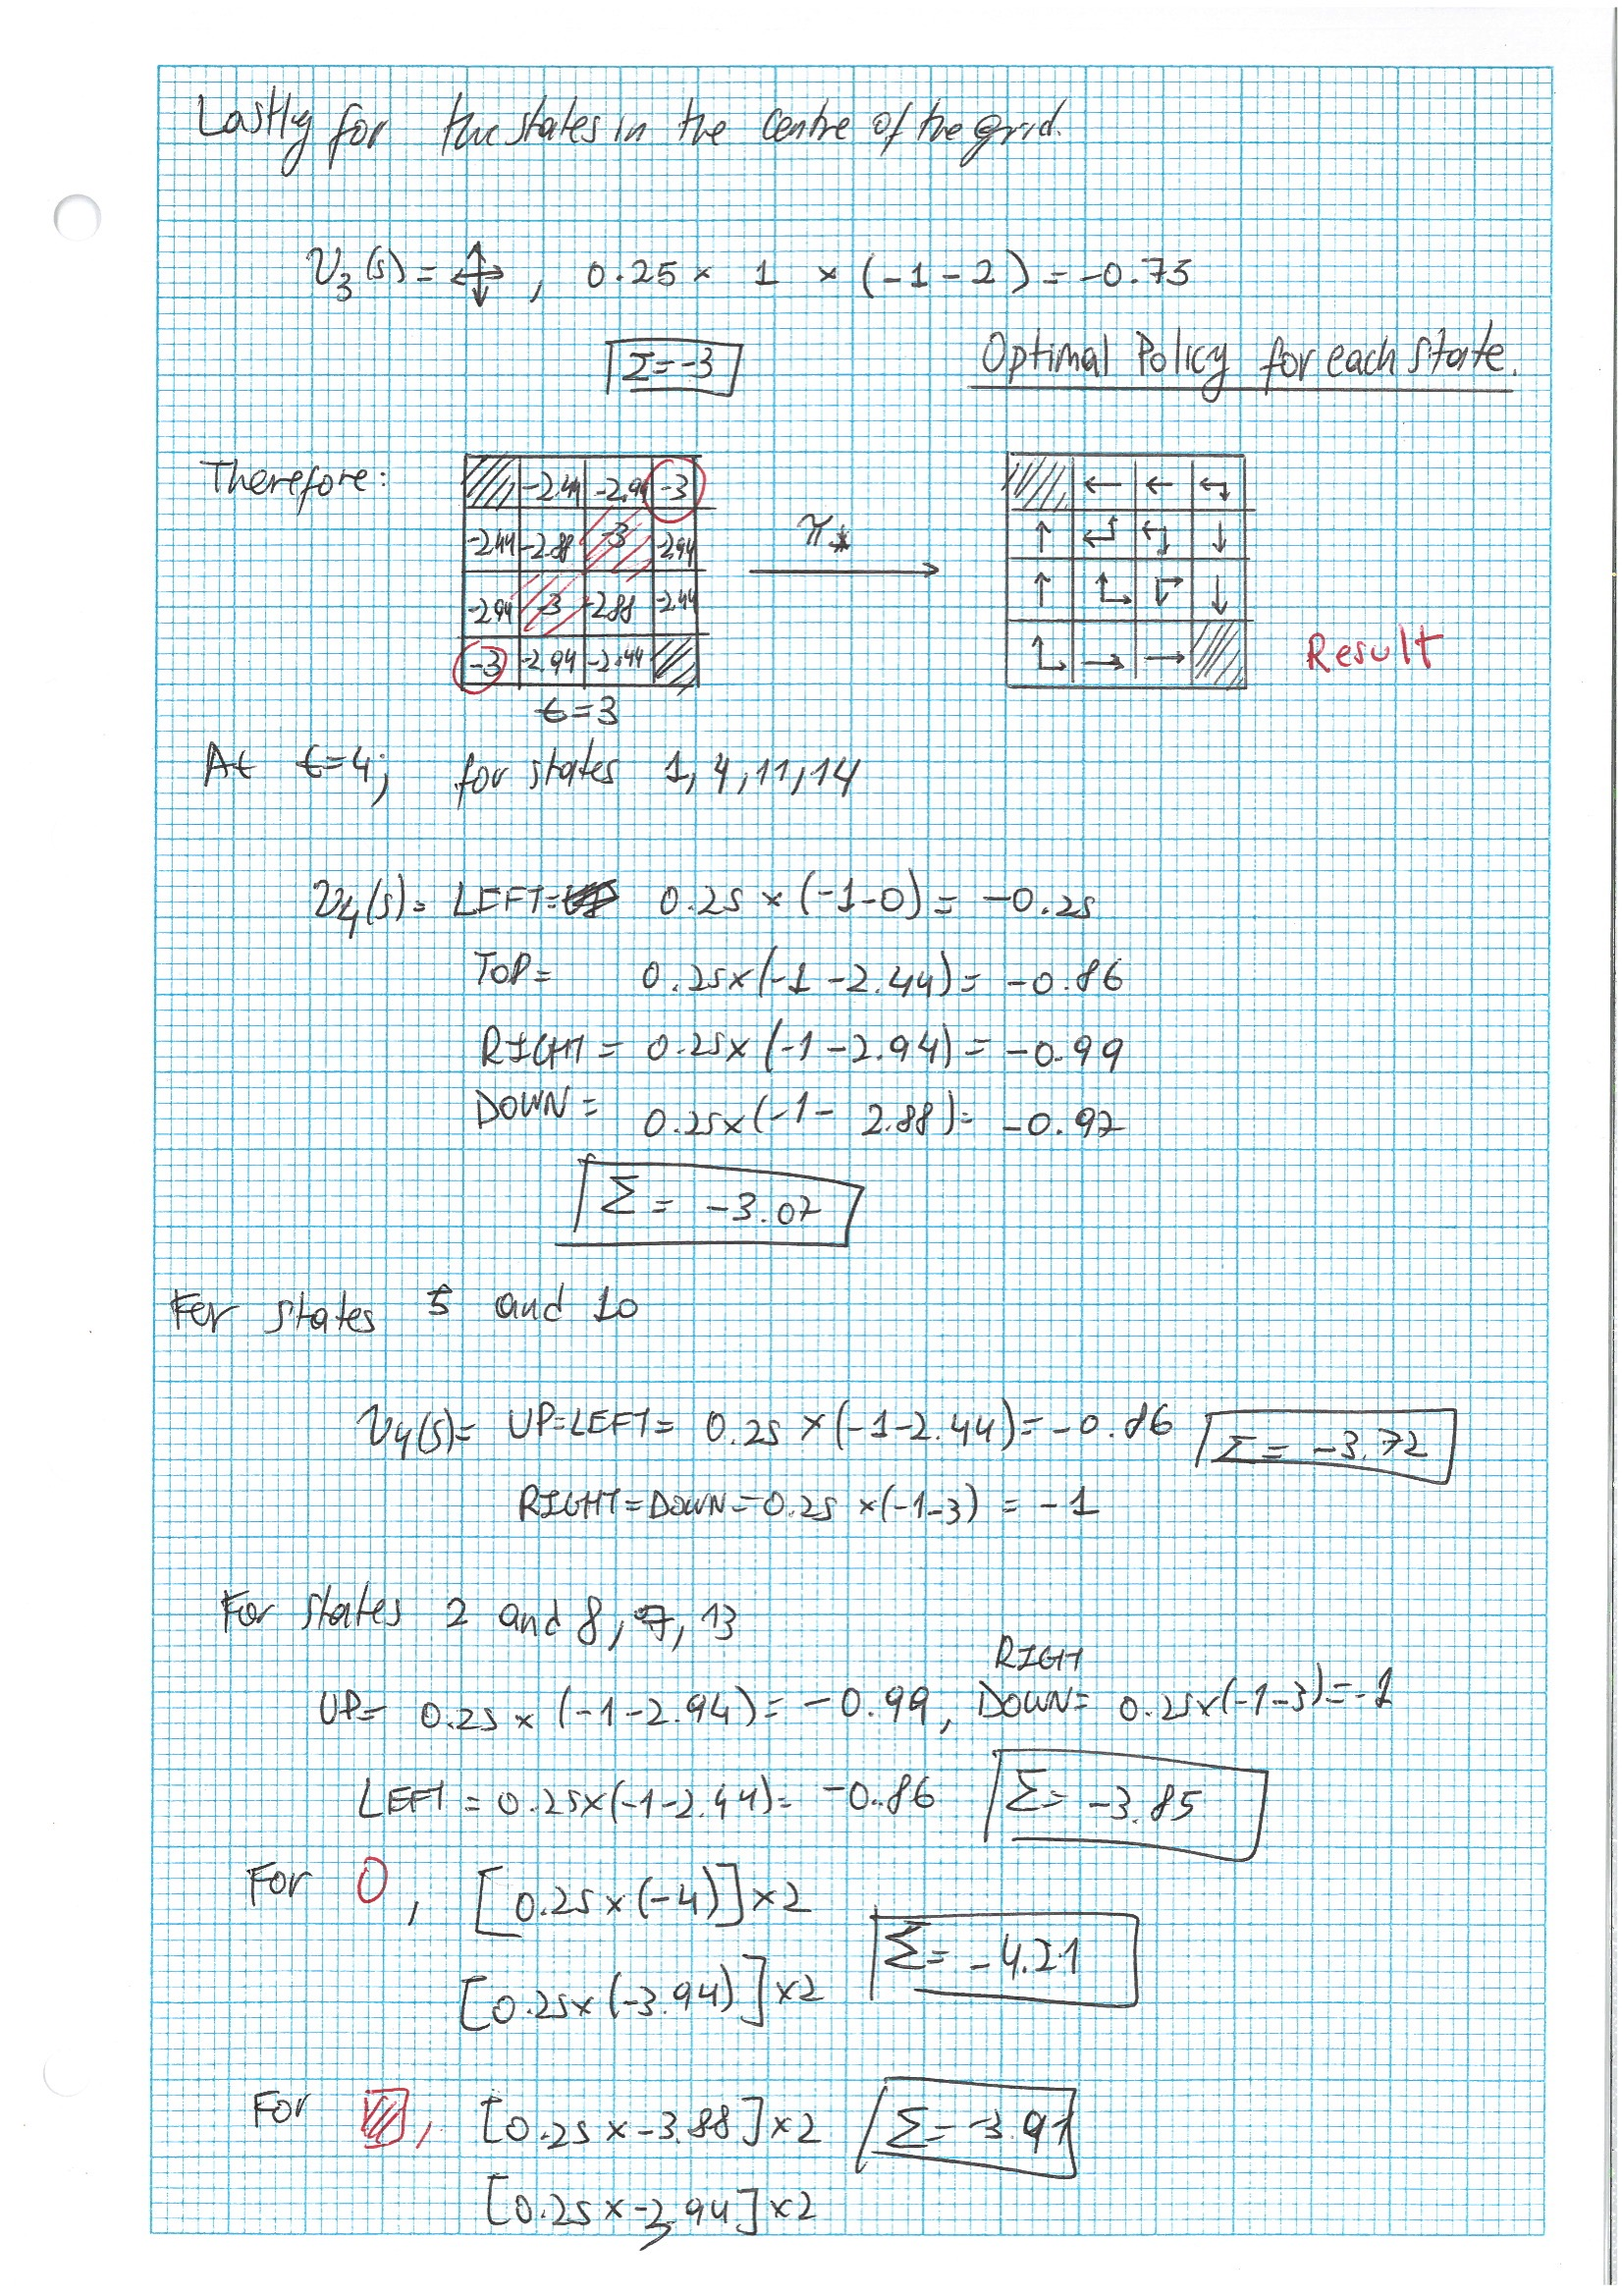 Lastly for the states in the centre of the grid.
V3(s) = , 0.25 × 1 × (-1-2) = -0.75
Σ=-3
Optimal Policy for each state.
Therefore:
-2.44 -2.94 -3
-2.44 -2.88 -3 -2.94
-2.94 -3 -2.88 -2.44
-3 -2.94 -2.44
t=3
π*
← ←
↑ ↓
↑ ↓
→ →
Result
At t=4; for states 1, 4, 11, 14
V4(s) = LEFT= 0.25 × (-1-0) = -0.25
TOP= 0.25×(-1-2.44) = -0.86
RIGHT = 0.25× (-1-2.94) = -0.99
DOWN = 0.25×(-1- 2.88)= -0.97
Σ = -3.07
For states 5 and 10
V4(s)= UP=LEFT= 0.25 ×(-1-2.44)= -0.86
Σ = -3.72
RIGHT=DOWN=0.25 ×(-1-3) = -1
For states 2 and 8, 7, 13
UP= 0.25 × (-1-2.94)= -0.99, RIGHT DOWN= 0.25×(-1-3)=-1
LEFT = 0.25×(-1-2.44)= -0.86
Σ= -3.85
For O, [0.25×(-4)]×2
[0.25×(-3.94)]×2
Σ= -4.21
For , [0.25×-3.88]×2
Σ=-3.91
[0.25×-3.94]×2